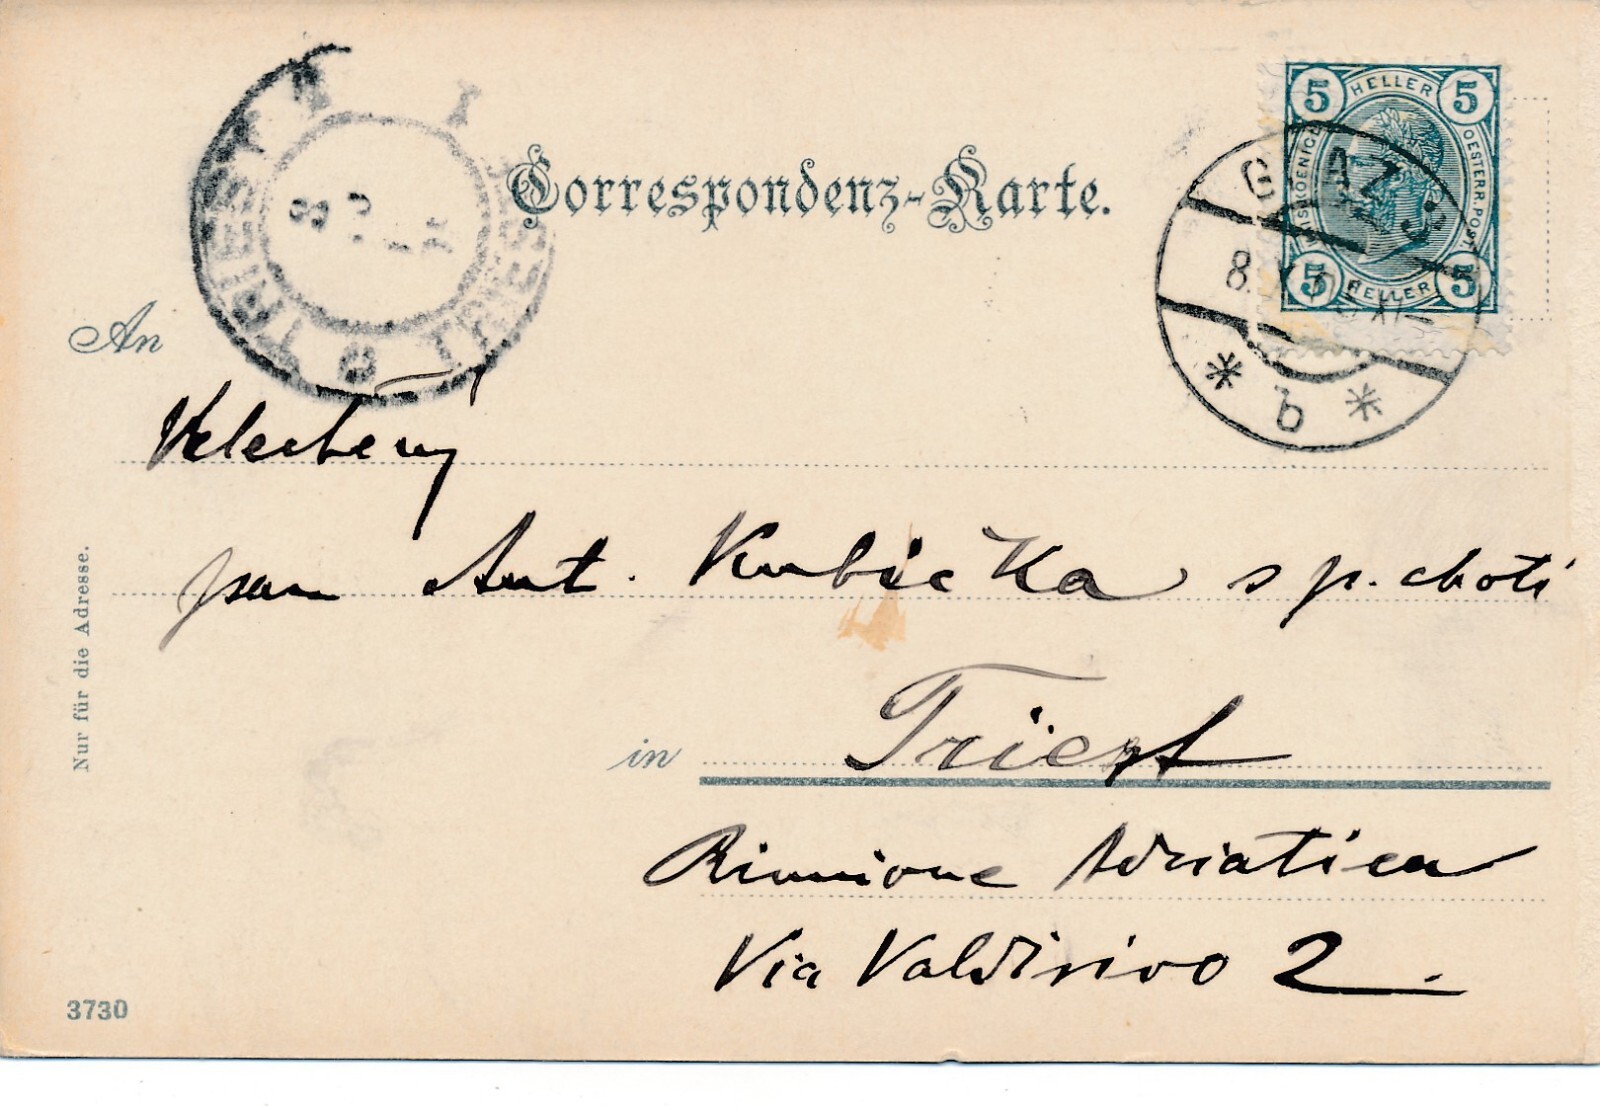 Correspondenz-Karte.
5 HELLER 5
KAIS. KOENIGL.
OESTERR. POST.
5 HELLER 5
GRAZ
8.
* b *
TRIEST
TRIEST
An
Velectěný
pan Ant. Kubička s p. chotí
in Triest
Riunione Adriatica
Via Valdirivo 2.
Nur für die Adresse.
3730